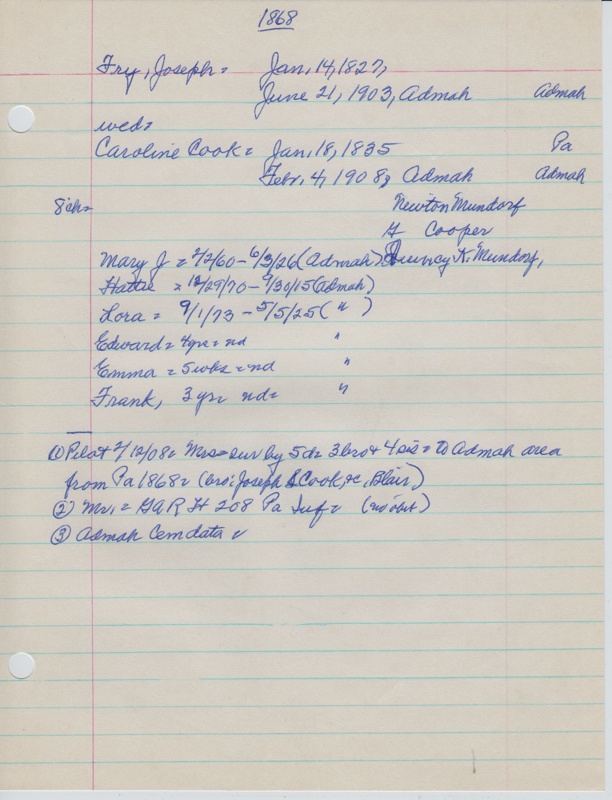 1868
Fry, Joseph = Jan. 14, 1827,
June 21, 1903, Admah Admah
wed=
Caroline Cook = Jan. 18, 1835 Pa
Febr. 4, 1908, Admah Admah
8 ch= Newton Mundorf
H Cooper
Mary J = 2/2/60 - 6/3/26 (Admah) Quincy K. Mundorf,
Hattie = 12/29/70 - 9/30/15 (Admah)
Lora = 9/1/73 - 5/5/25 ( " )
Edward = 4 yrs = nd "
Emma = 5 wks = nd "
Frank, 3 yr = nd = "
① Pilot 2/12/08 = Mrs = sur by 5 ch 3 bro + 4 sis = to Admah area
from Pa 1868 = (bro: Joseph S Cook, Blair)
② Mr. = GAR H 208 Pa Inf = (no obit)
③ Admah Cem data =